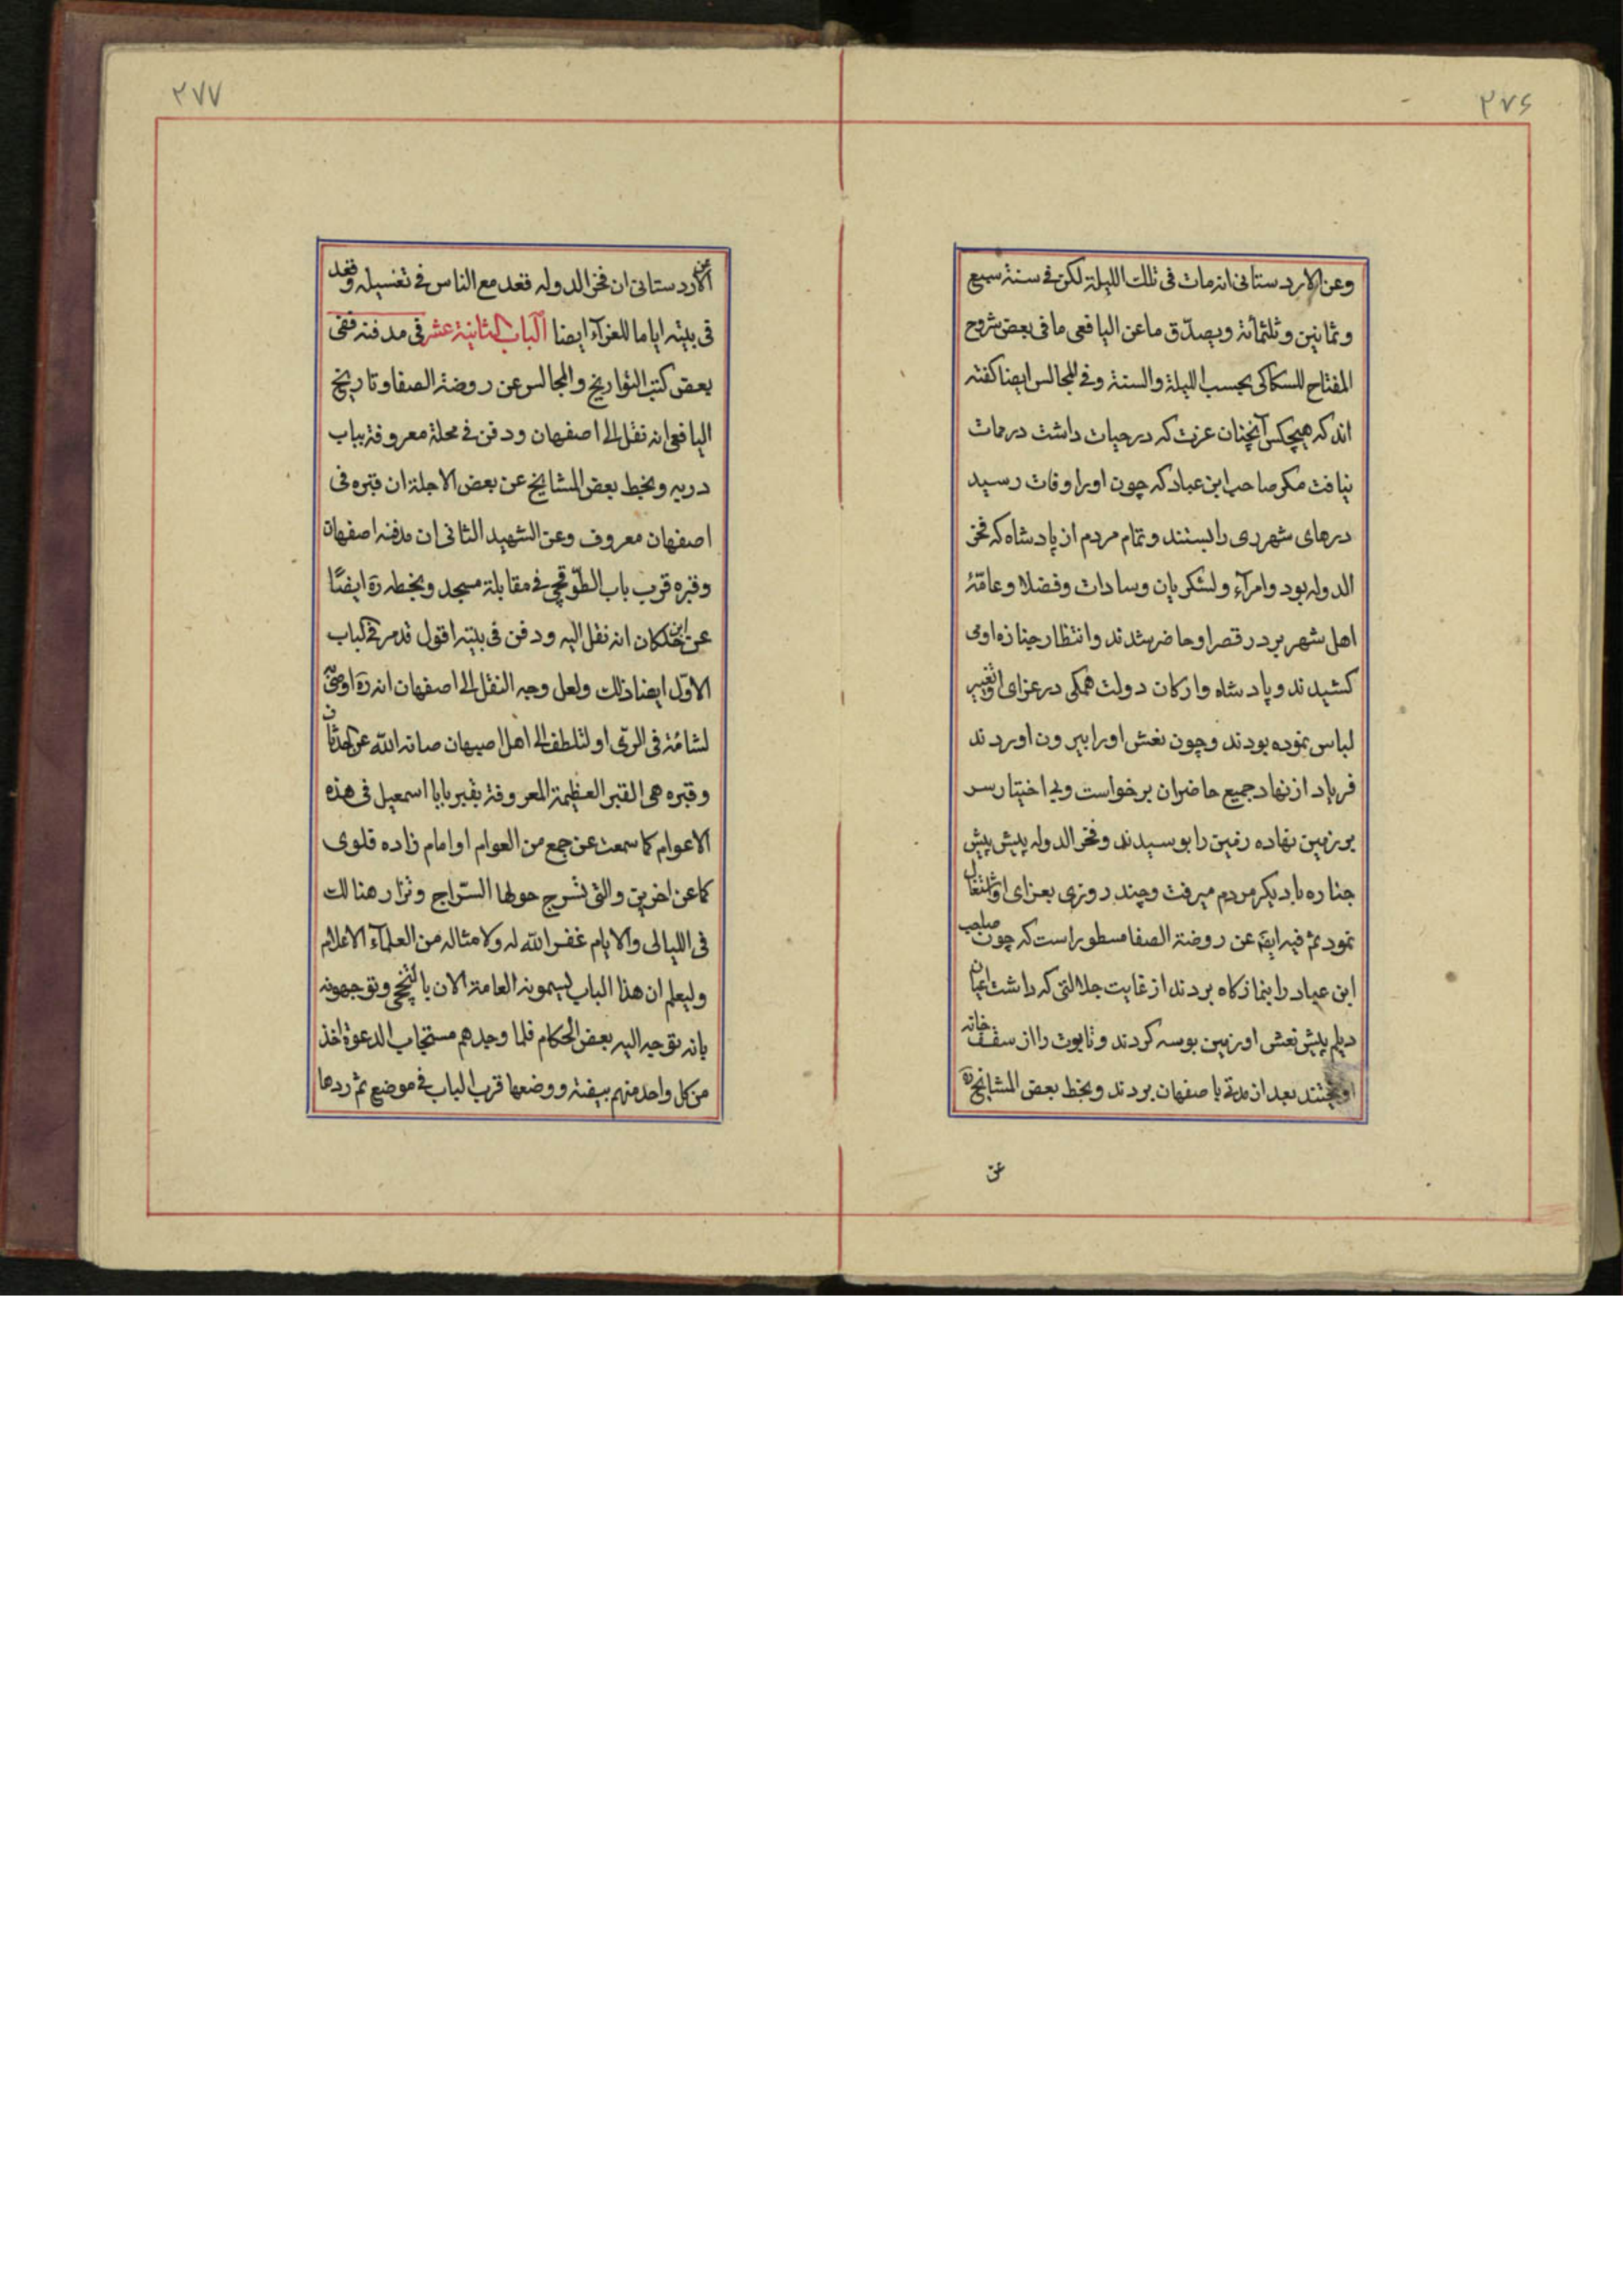 ۲۷۶
وعن الاردستانی انه مات فی تلک اللیلة لکن فی سنة سبع
وثمانین وثلثمائة ویصدّق ما عن الیافعی ما فی بعض شروح
المفتاح للسکاکی بحسب اللیلة والسنة وفی المجالس ایضا کفته
اند که هیچکس آنچنان عزت که در حیات داشت در ممات
نیافت مکر صاحب ابن عباد که چون او را وفات رسید
درهای شهر ری را بستند و تمام مردم از پادشاه که فخر
الدوله بود وامرآء ولشکریان وسادات وفضلا وعامّهٔ
اهل شهر بر در قصر او حاضر شدند وانتظار جنازه او می
کشیدند و پادشاه وارکان دولت همکی در عزای او تغییر
لباس نموده بودند وچون نعش او را بیرون اوردند
فریاد از نهاد جمیع حاضران برخواست وبی اختیار سر
بر زمین نهاده زمین را بوسیدند وفخر الدوله پیش پیش
جنازه با دیکر مردم میرفت وچند روزی بعزای او اشتغال
نمود ثم فیه ایضً عن روضة الصفا مسطور است که چون صاحب
ابن عباد را بنمازکاه بردند از غایت جلالتی که داشت اعیان
دیلم پیش نعش او زمین بوسه کردند وتابوت را از سقف خانه
اویختند بعد از مدتی باصفهان بردند وبخط بعض المشایخ ره
عن
۲۷۷
عن الاردستانی ان فخر الدوله قعد مع الناس فی تغسیله وقعد
فی بیته ایاما للعزآء ایضا الباب الثانیة عشر فی مدفنه ففی
بعض کتب التواریخ والمجالس عن روضة الصفا وتاریخ
الیافعی انه نقل الی اصفهان ودفن فی محلة معروفة بباب
دریه وبخط بعض المشایخ عن بعض الاجلة ان قبره فی
اصفهان معروف وعن الشهید الثانی ان مدفنه اصفهان
وقبره قرب باب الطّوقچی فی مقابلة مسجد وبخطه ره ایضًا
عن ابن خلکان انه نقل الیه ودفن فی بیته اقول قد مر فی الباب
الاوّل ایضا ذلک ولعل وجه النقل الی اصفهان انه ره اوصی
لشامة فی الری او لتلطف الی اهل اصبهان صانه الله عن الحدثان
وقبره هی القبر العظیمة المعروفة بقبر بابا اسمعیل فی هذه
الاعوام کما سمعت عن جمع من العوام او امام زاده قلوی
کما عن اخرین والتی تسرج حولها السّراج وتزار هنالک
فی اللیالی والایام غفر الله له ولامثاله من العلمآء الاعلام
ولیعلم ان هذا الباب یسمونه العامة الان بالتخچی وتوجهونه
بانه توجه الیه بعض الحکام فلما وجدهم مستجاب الدعوة اخذ
من کل واحد منهم بیضة ووضعها قرب الباب فی موضع ثم ردها